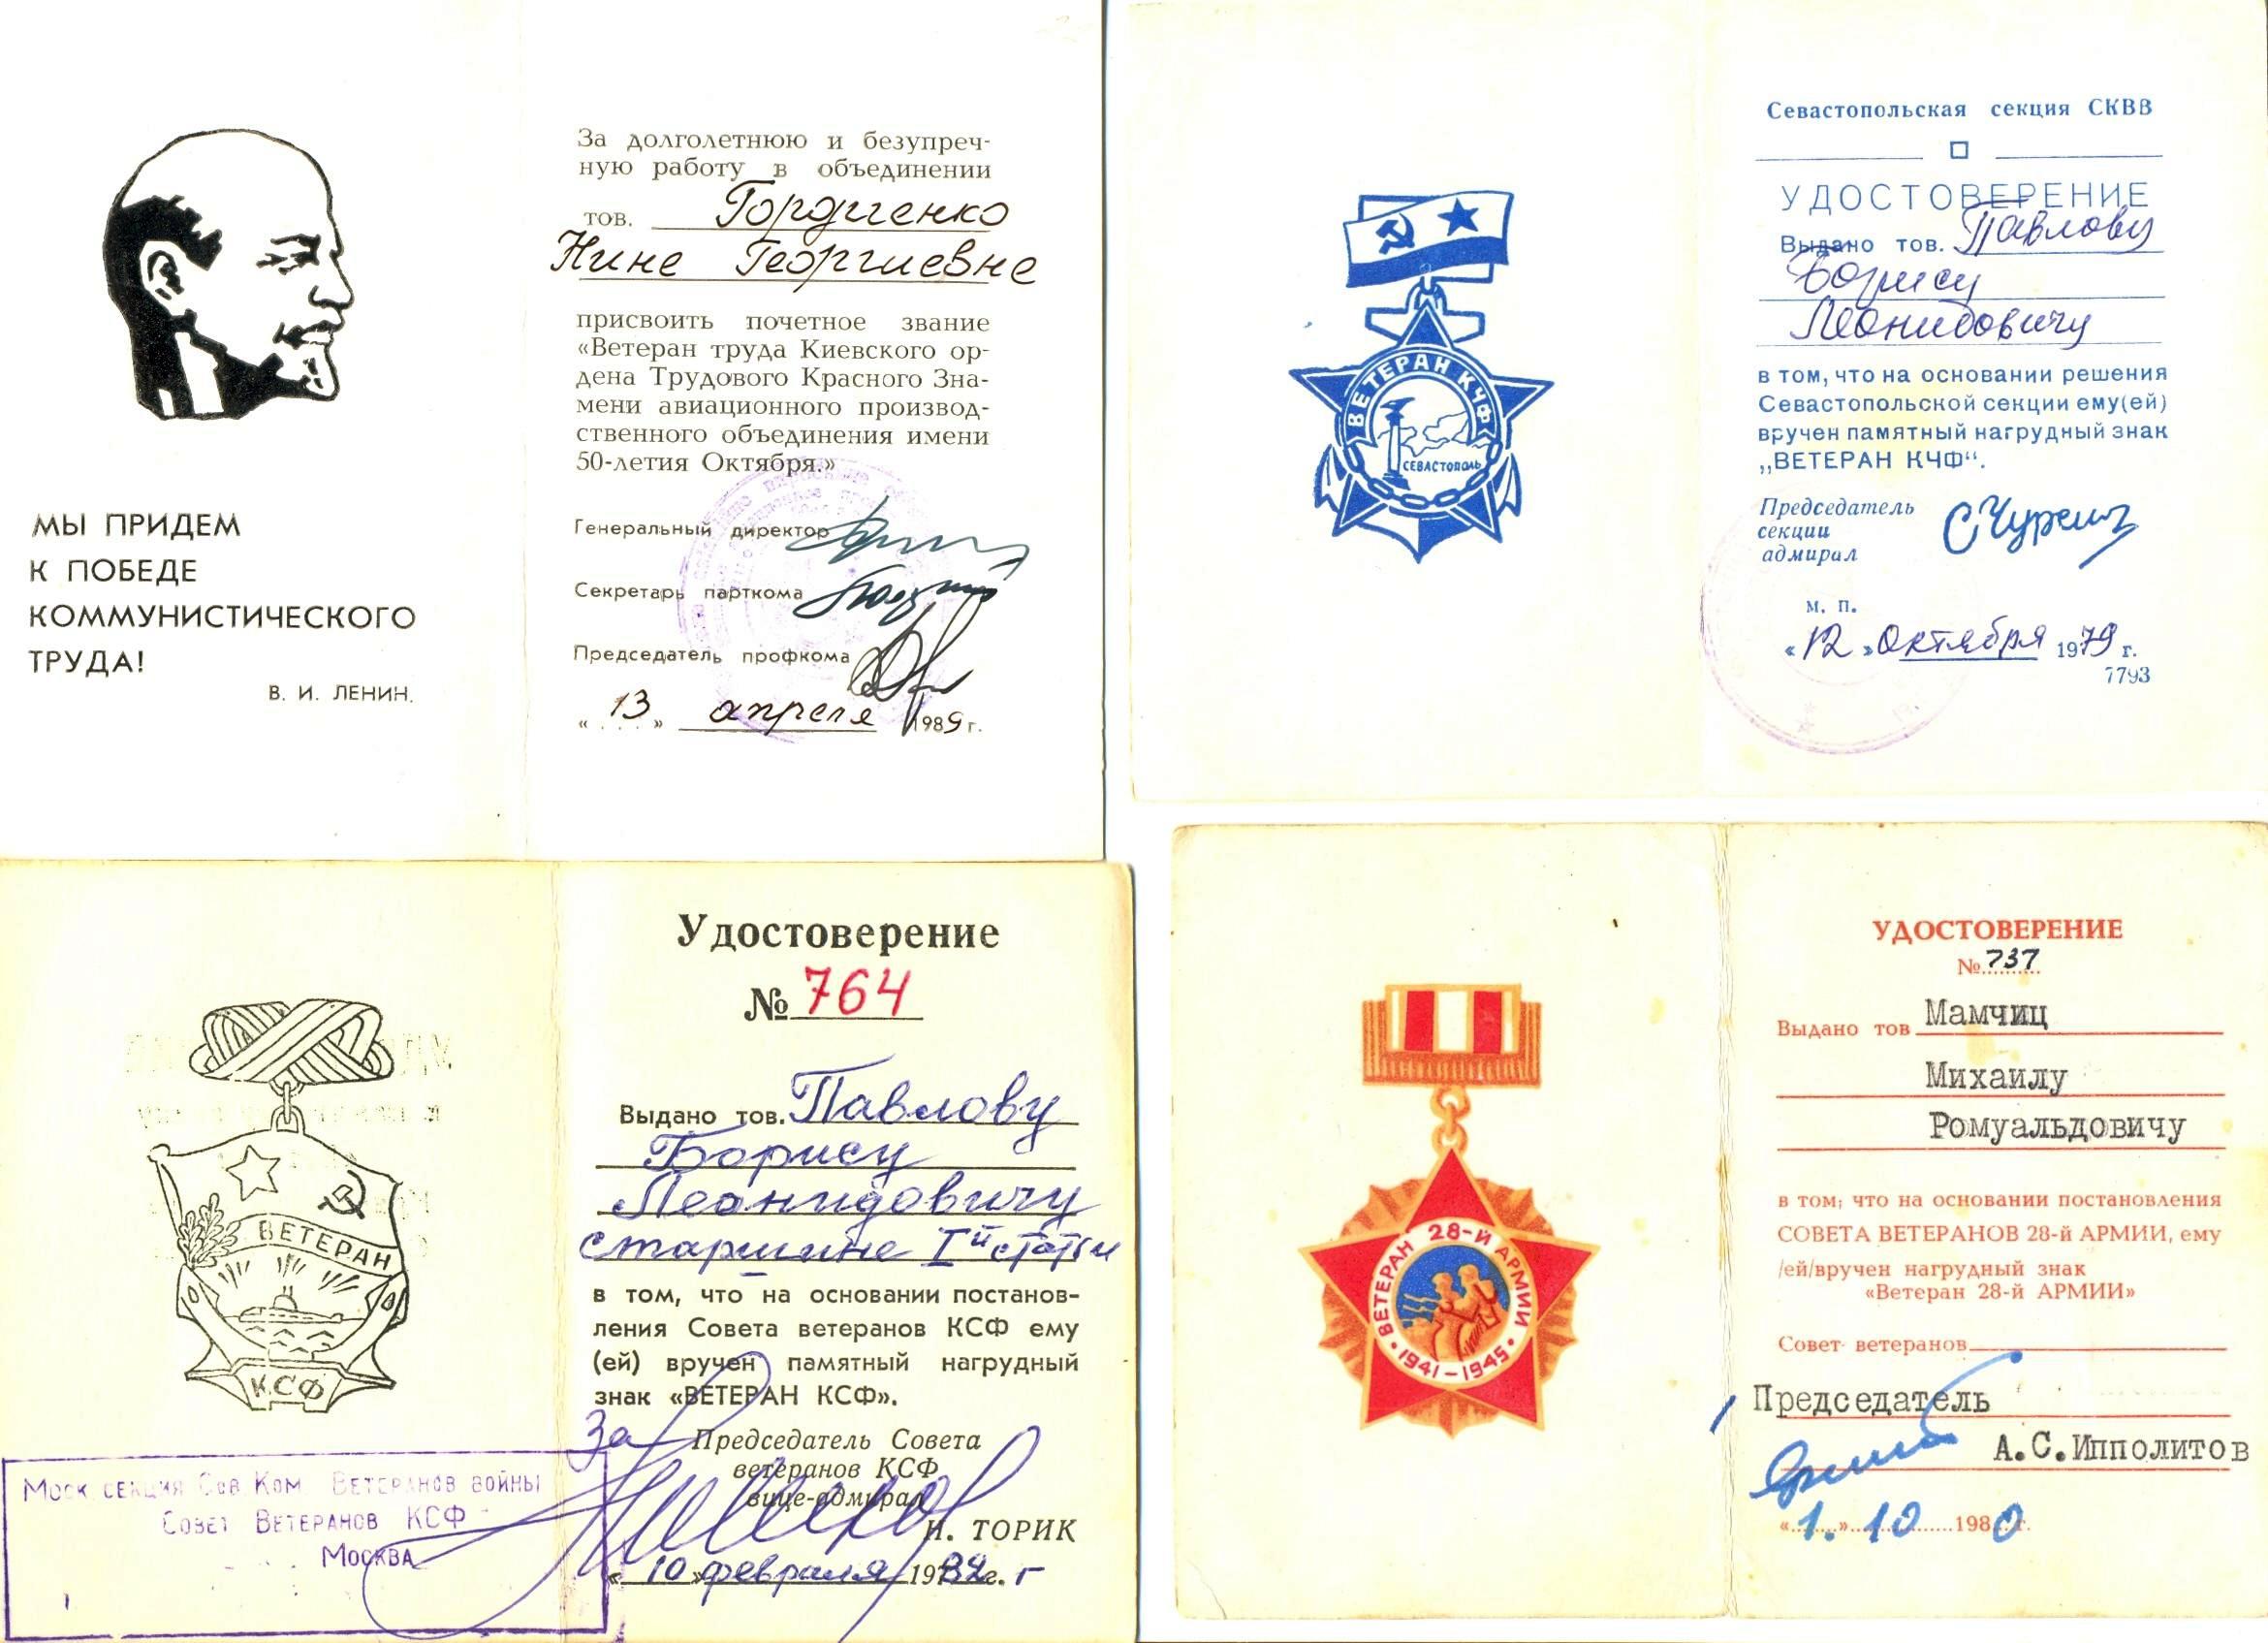 МЫ ПРИДЕМ
К ПОБЕДЕ
КОММУНИСТИЧЕСКОГО
ТРУДА!
В. И. ЛЕНИН.
За долголетнюю и безупреч-
ную работу в объединении
тов. Гордиенко
Нине Георгиевне
присвоить почетное звание
«Ветеран труда Киевского ор-
дена Трудового Красного Зна-
мени авиационного производ-
ственного объединения имени
50-летия Октября.»
Генеральный директор
Секретарь парткома
Председатель профкома
«13» апреля 1989 г.
ВЕТЕРАН КЧФ
СЕВАСТОПОЛЬ
Севастопольская секция СКВВ
УДОСТОВЕРЕНИЕ
Выдано тов. Павлову
Борису
Леонидовичу
в том, что на основании решения
Севастопольской секции ему(ей)
вручен памятный нагрудный знак
„ВЕТЕРАН КЧФ“.
Председатель
секции
адмирал
м. п.
«12» октября 1979 г.
7793
ВЕТЕРАН
КСФ
Моск секция Сов Ком Ветеранов войны
Совет Ветеранов КСФ
Москва
Удостоверение
№ 764
Выдано тов. Павлову
Борису
Леонидовичу
старшине Iй статьи
в том, что на основании постанов-
ления Совета ветеранов КСФ ему
(ей) вручен памятный нагрудный
знак «ВЕТЕРАН КСФ».
За Председатель Совета
ветеранов КСФ
вице-адмирал
Н. ТОРИК
«10» февраля 1982 г. г
ВЕТЕРАН 28-Й АРМИИ
1941-1945
УДОСТОВЕРЕНИЕ
№ 737
Выдано тов Мамчиц
Михаилу
Ромуальдовичу
в том; что на основании постановления
СОВЕТА ВЕТЕРАНОВ 28-й АРМИИ, ему
/ей/вручен нагрудный знак
«Ветеран 28-й АРМИИ»
Совет ветеранов
Председатель
А.С.Ипполитов
«1.» 10 1980 г.